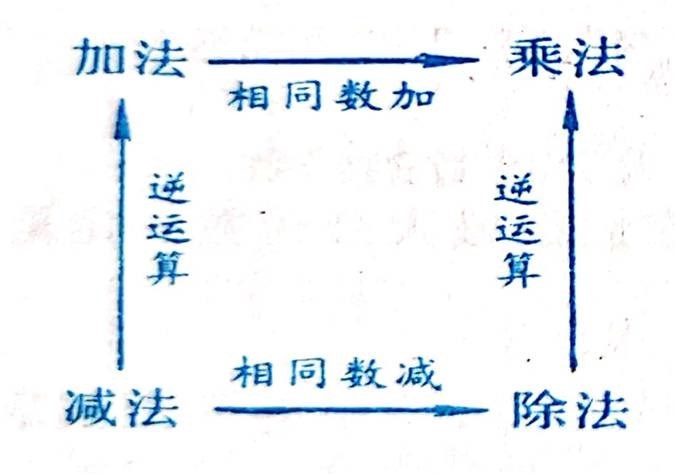 加法 乘法
相同数加
逆运算 逆运算
相同数减
减法 除法